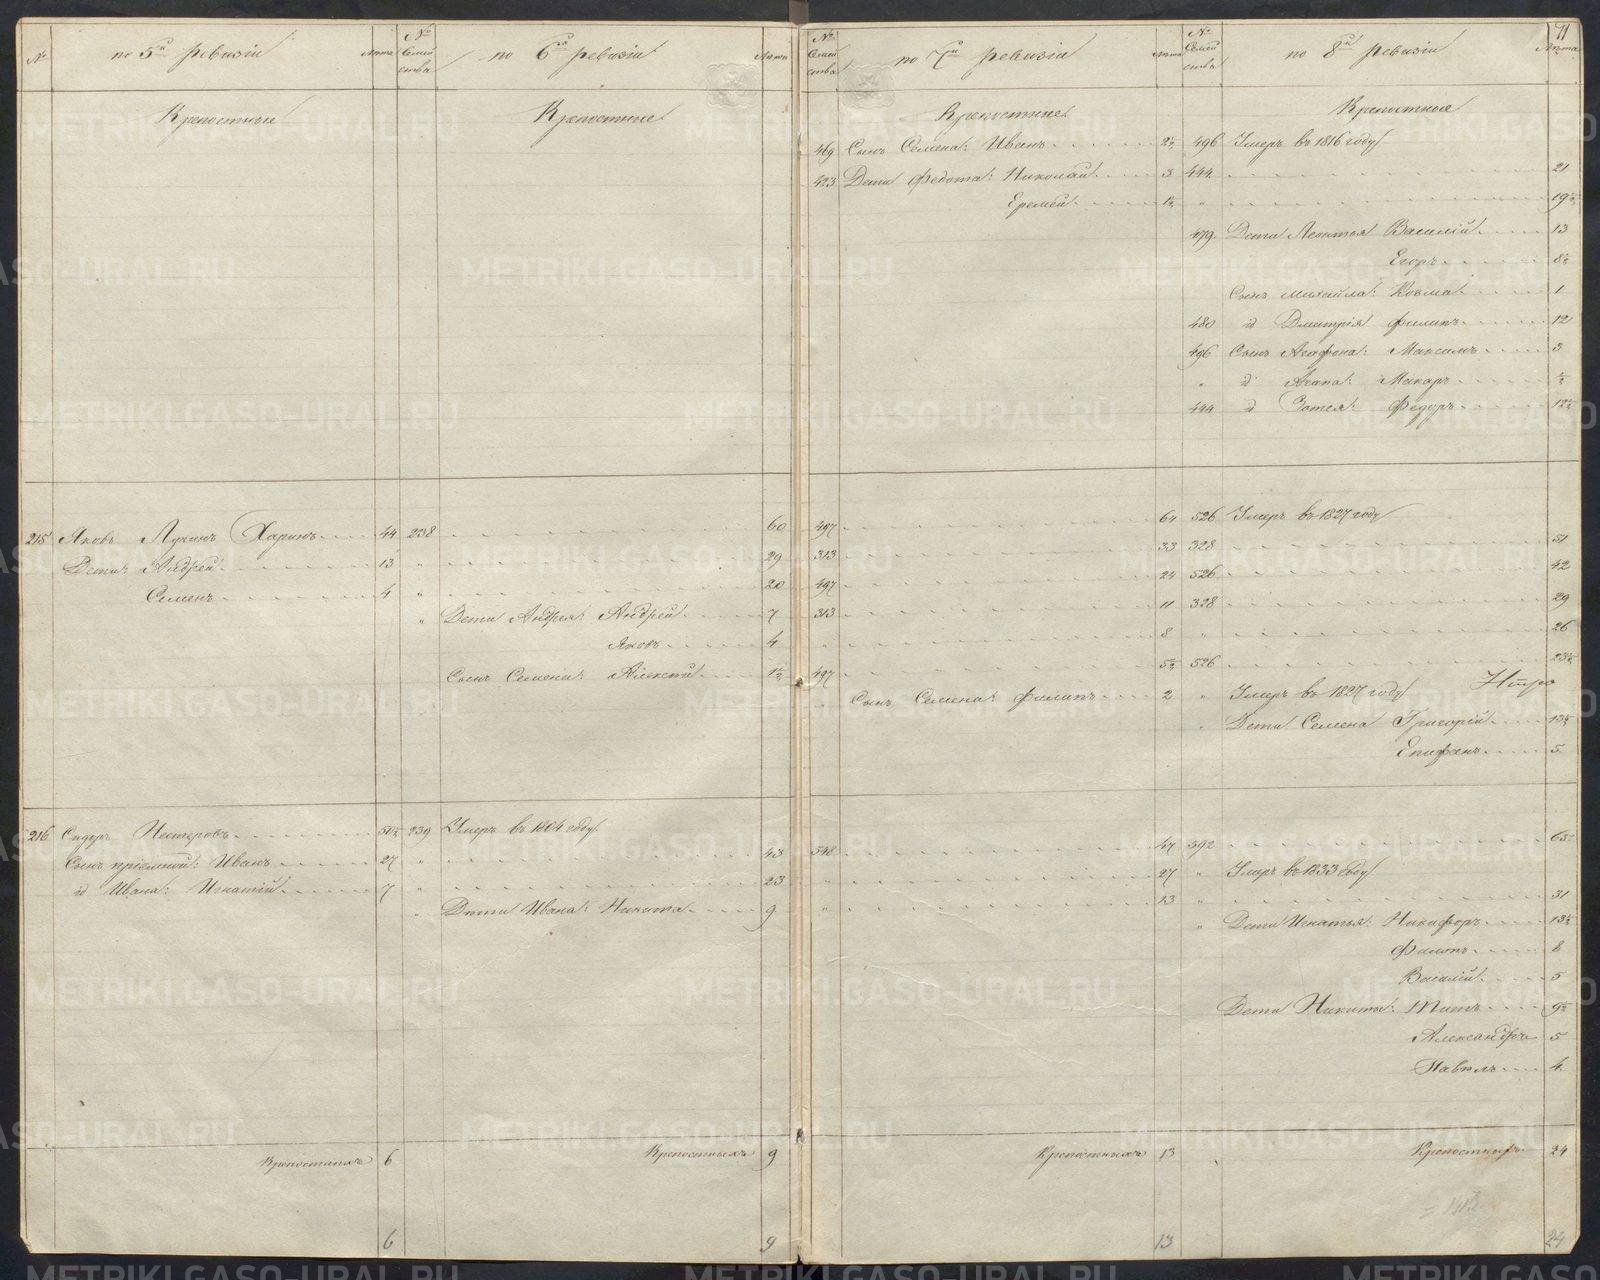 № по 5й ревизiи Лѣта № Семейства по 6й ревизiи Лѣта
Крепостные Крепостные
215 Яковъ Лукинъ Харинъ 44 238 60
Дети: Андрей 13 " 29
Семенъ 4 " 20
" Дети Андрея: Андрей 7
Яковъ 4
Сынъ Семена: Алексѣй 1½
216 Сидоръ Нестеровъ 50½ 239 Умеръ въ 1804 году
Сынъ прiемной: Иванъ 27 " 43
id Ивана: Игнатiй 7 " 23
" Дети Ивана: Никита 9
Крепостныхъ 6 Крепостныхъ 9
6 9
71
№ Семейства по 7й ревизiи Лѣта № Семейства по 8й ревизiи Лѣта
Крепостные Крепостные
469 Сынъ Семена: Иванъ 2½ 496 Умеръ въ 1816 году
423 Дети Федота: Николай 3 444 21
Еремей 1½ " 19½
479 Дети Леонтья Василiй 13
Егоръ 8½
Сынъ Михайла: Козма 1
480 id Дмитрiя Филипъ 12
496 Сынъ Агафона: Максимъ 3
" id Агапа: Макаръ ½
444 id Зотея: Федоръ 12½
497 64 526 Умеръ въ 1827 году
313 33 328 51
497 24 526 42
313 11 328 29
" 8 " 26
497 5½ 526 23½
" Сынъ Семена: Филипъ 2 " Умеръ въ 1827 году
" Дети Семена Григорiй 13½
Епифанъ 5
548 47 592 65
" 27 " Умеръ въ 1833 году
" 13 " 31
" Дети Игнатья: Никифоръ 13½
Филипъ 8
Василiй 5
Дети Никиты: Титъ 9½
Александръ 5
Павелъ 4
Крепостныхъ 13 Крепостныхъ 24
13 24
METRIKI.GASO-URAL.RU